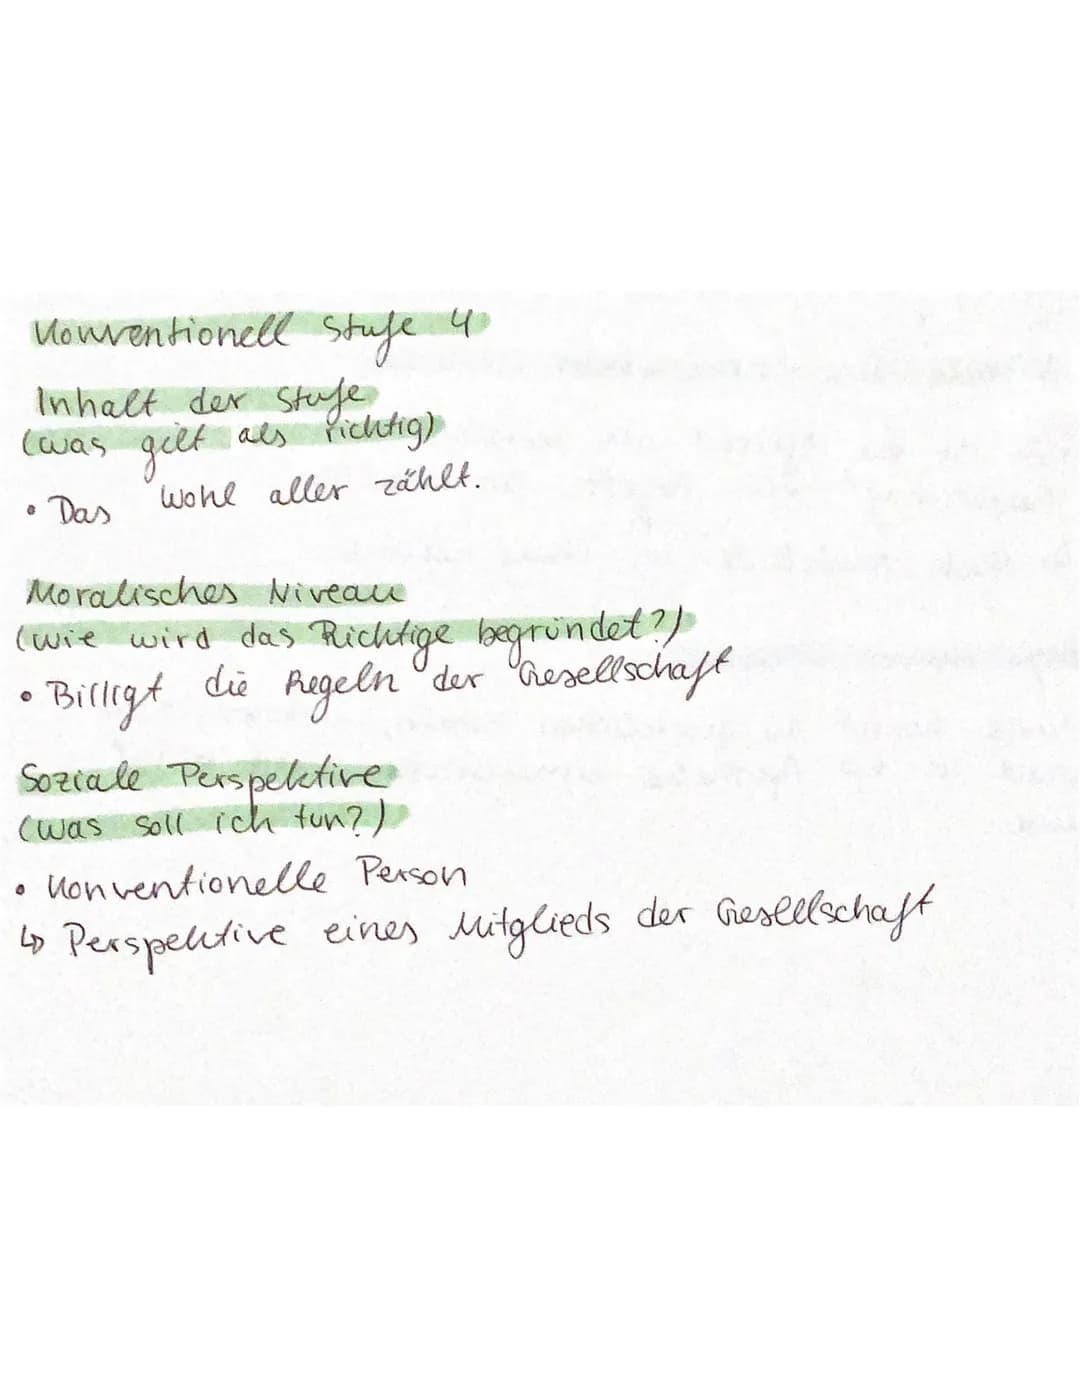 Konventionell Stufe 4
Inhalt der Stufe
(was gilt als richtig)
• Das Wohl aller zählt.
Moralisches Niveau
(wie wird das Richtige begründet?)
• Billigt die Regeln der Gesellschaft
Soziale Perspektive
(was soll ich tun?)
• Konventionelle Person
↳ Perspektive eines Mitglieds der Gesellschaft